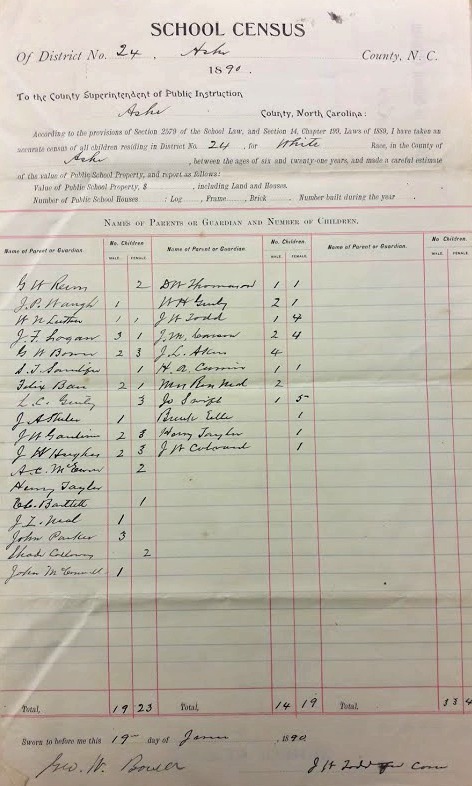 SCHOOL CENSUS
Of District No. 24, Ashe County, N. C.
1890.
To the County Superintendent of Public Instruction
Ashe County, North Carolina:
According to the provisions of Section 2579 of the School Law, and Section 14, Chapter 199, Laws of 1889, I have taken an
accurate census of all children residing in District No. 24, for White Race, in the County of
Ashe, between the ages of six and twenty-one years, and made a careful estimate
of the value of Public School Property, and report as follows:
Value of Public School Property, $ , including Land and Houses.
Number of Public School Houses : Log , Frame , Brick Number built during the year
NAMES OF PARENTS OR GUARDIAN AND NUMBER OF CHILDREN.
Name of Parent or Guardian. No. Children Name of Parent or Guardian. No. Children Name of Parent or Guardian. No. Children
MALE. FEMALE MALE. FEMALE MALE. FEMALE
G W 2 D W Thomason 1 1
J. P. Waugh 1 W H Gentry 2 1
W N Luther 1 1 J W Todd 1 4
J. F. Logan 3 1 J. M. 2 4
G W Bower 2 3 J. L. Akers 4
S. J. 1 H. A. 1 1
Felix Barr 2 1 Mrs Neal 2
L. C. Gentry 3 Jo 1 5
J A 1 1
J W 2 3 Henry Taylor 1
J W Hughes 2 3 J W Colvard 1
A. C. 2
Henry Taylor
Bartlett 1
J. I. Neal 1
John Parker 3
2
John 1
Total, 19 23 Total, 14 19 Total, 33 4
Sworn to before me this 19 day of June, 1890
Geo. W. Bower J W Todd Com